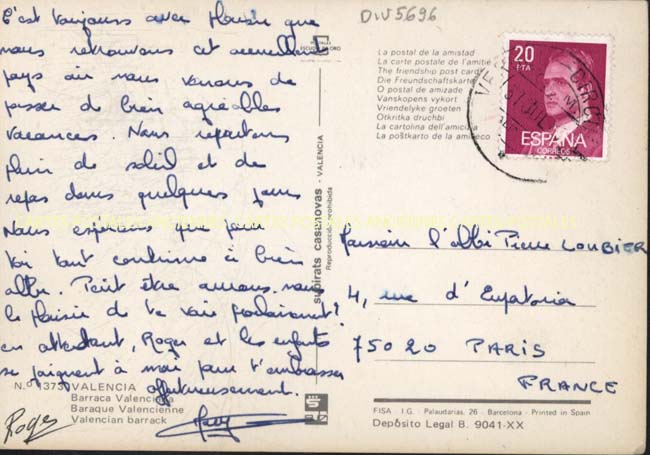 DIV5696
C'est toujours avec plaisir que
nous retrouvons cet accueillant
pays où nous venons de
passer de bien agréables
vacances. Nous repartons
plein de soleil et de
repos dans quelques jours
Nous espérons que pour
toi tout continue à bien
aller. Peut être aurons-nous
le plaisir de te voir prochainement?
en attendant, Roger et les enfants
se joignent à moi pour t'embrasser
affectueusement.
Roger
N.º 1373 VALENCIA
Barraca Valenciana
Baraque Valencienne
Valencian barrack
subirats casanovas - VALENCIA
Reproducción prohibida
ESCUDO DE ORO
La postal de la amistad
La carte postale de l'amitié
The friendship post card
Die Freundschaftskarte
O postal de amizade
Vanskopens vykort
Vriendelyke groeten
Otkritka druchbi
La cartolina dell'amicizia
La poŝtkarto de la amikeco
20
PTA
ESPAÑA
CORREOS
Monsieur l'abbé Pierre LOUBIER
4, rue d'Eupatoria
75020 PARIS
FRANCE
FISA - I.G. - Palaudarias, 26 - Barcelona - Printed in Spain
Depósito Legal B. 9041-XX